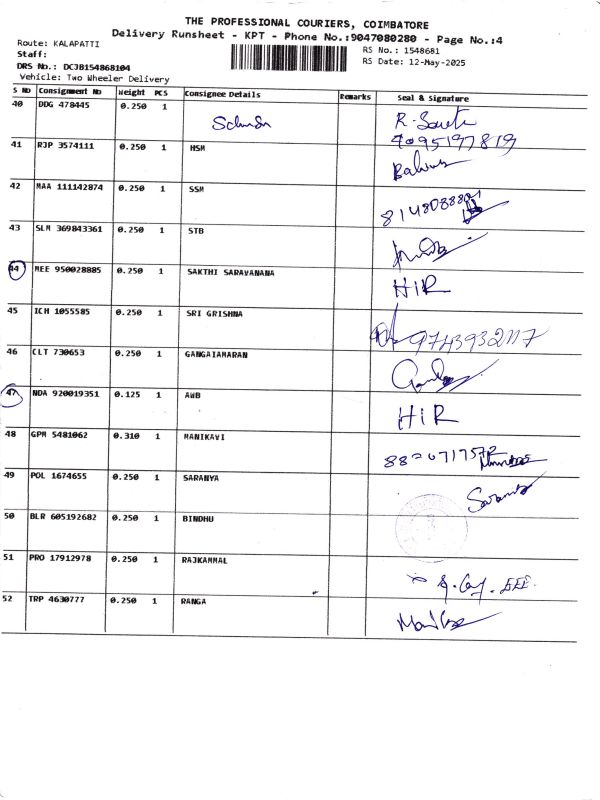 THE PROFESSIONAL COURIERS, COIMBATORE
Delivery Runsheet - KPT - Phone No.:9047080280 - Page No.:4
Route: KALAPATTI
RS No.: 1548681
Staff:
RS Date: 12-May-2025
DRS No.: DCJB154868104
Vehicle: Two Wheeler Delivery
S No Consignment No Weight PCS Consignee Details Remarks Seal & Signature
40 DDG 478445 0.250 1
41 RJP 3574111 0.250 1 HSM
42 MAA 111142874 0.250 1 SSM
43 SLM 369843361 0.250 1 STB
44 MEE 950028885 0.250 1 SAKTHI SARAVANANA HIR
45 ICH 1055585 0.250 1 SRI GRISHNA
46 CLT 730653 0.250 1 GANGAIAMARAN
47 NDA 920019351 0.125 1 AWB HIR
48 GPM 5481062 0.310 1 MANIKAVI
49 POL 1674655 0.250 1 SARANYA
50 BLR 605192682 0.250 1 BINDHU
51 PRO 17912978 0.250 1 RAJKAMMAL
52 TRP 4630777 0.250 1 RANGA